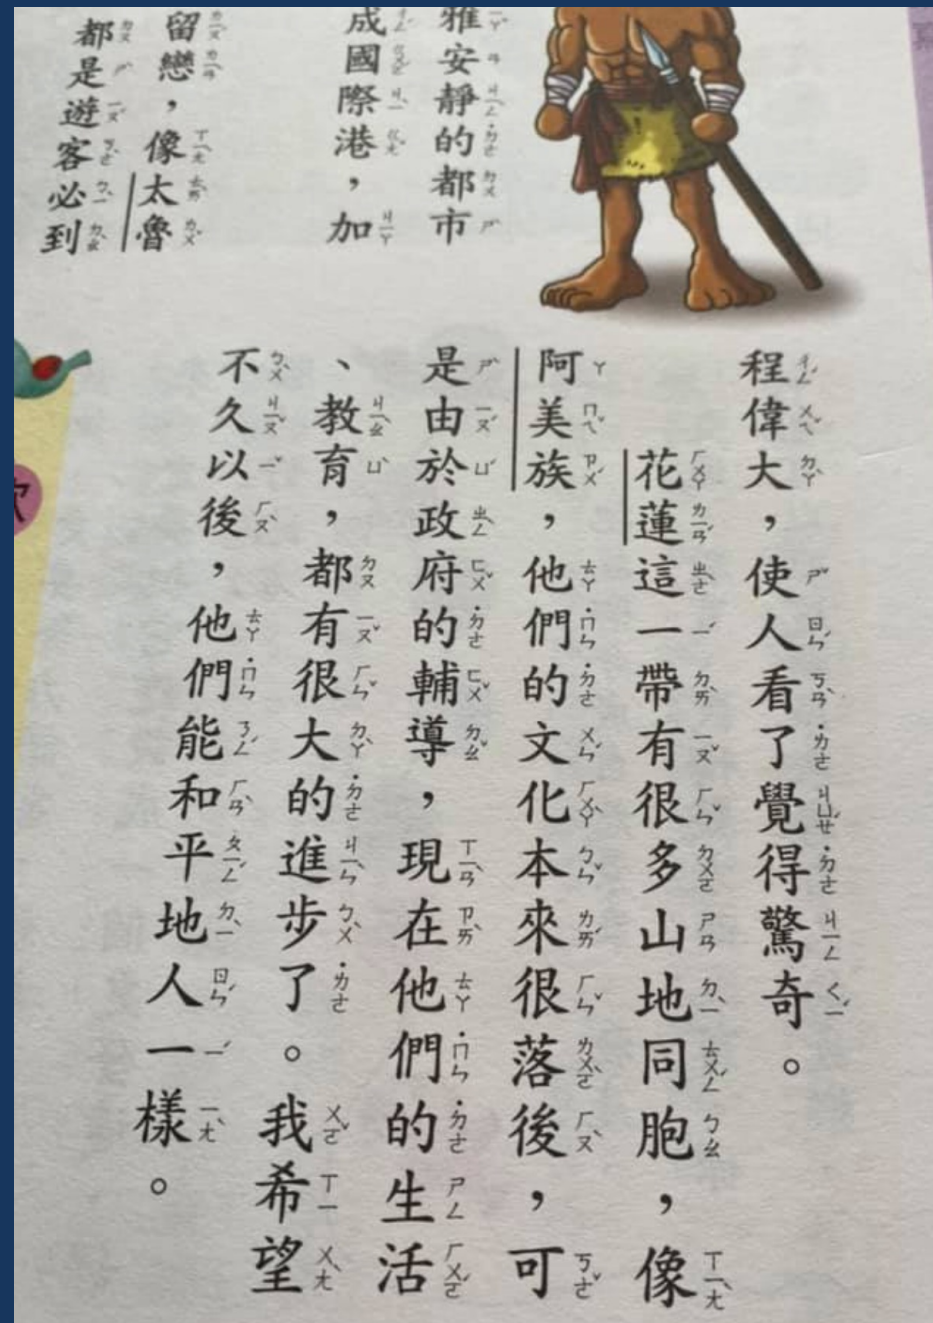 雅安靜的都市
成國際港，加
留戀，像太魯
都是遊客必到
程偉大，使人看了覺得驚奇。
花蓮這一帶有很多山地同胞，像
阿美族，他們的文化本來很落後，可
是由於政府的輔導，現在他們的生活
、教育，都有很大的進步了。我希望
不久以後，他們能和平地人一樣。